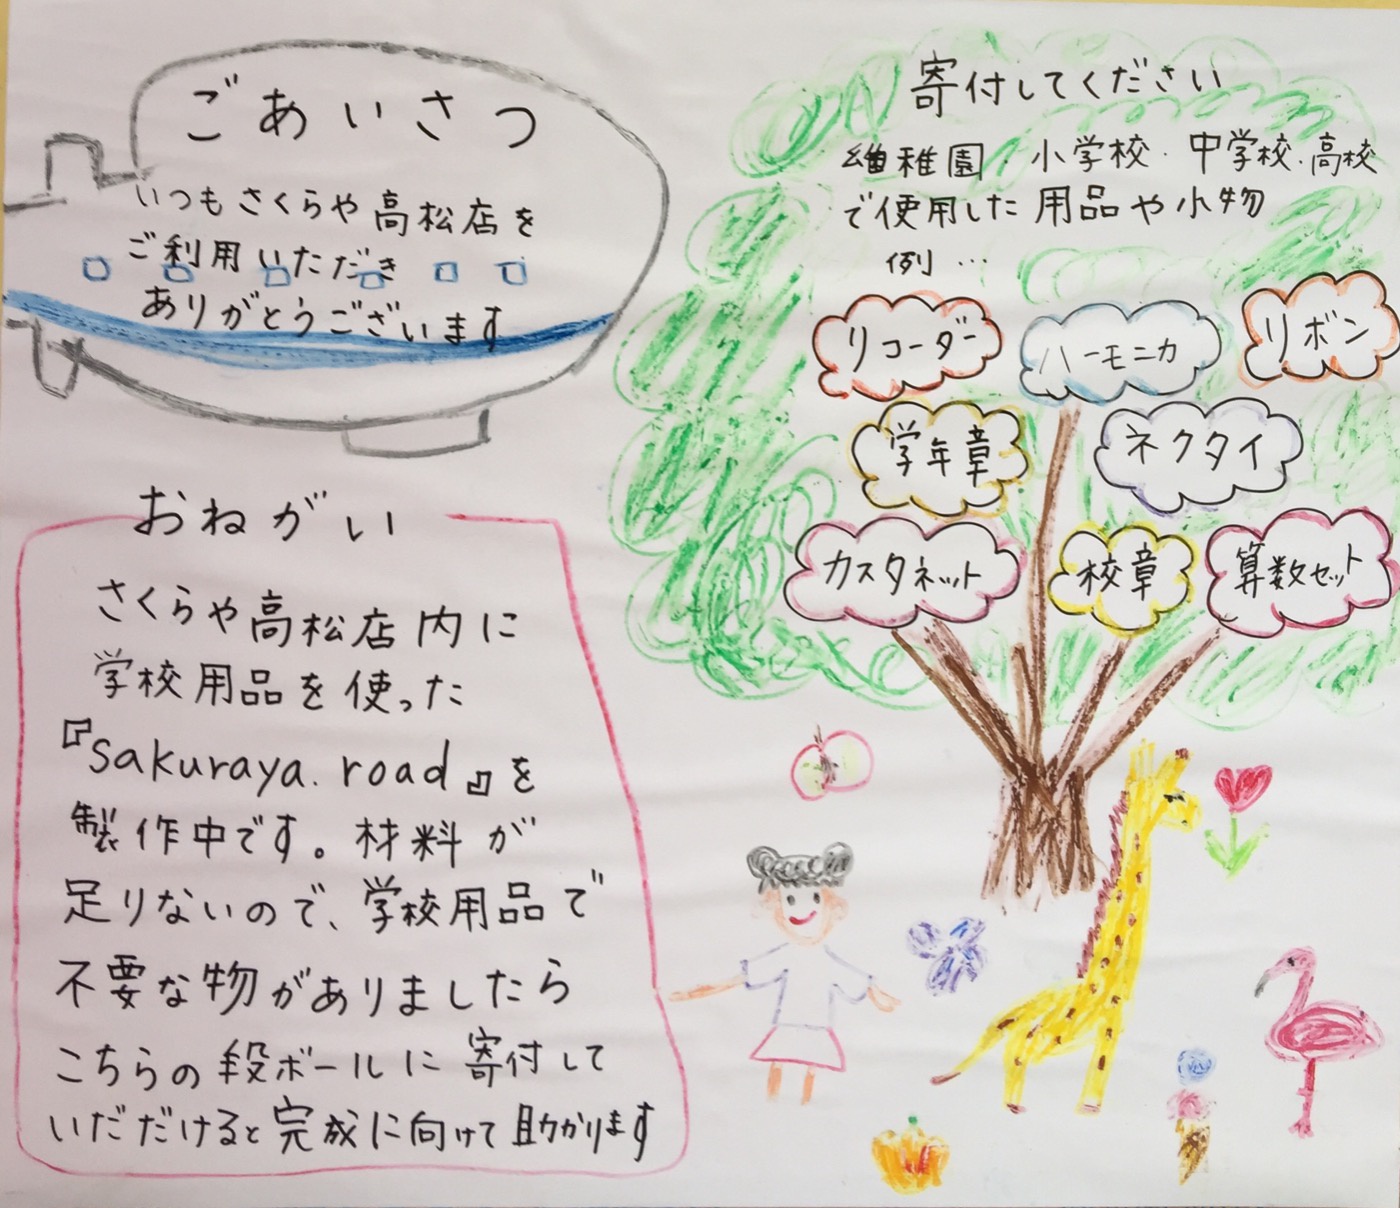 ごあいさつ
いつもさくらや高松店を
ご利用いただき
ありがとうございます
おねがい
さくらや高松店内に
学校用品を使った
『sakuraya.road』を
製作中です。材料が
足りないので、学校用品で
不要な物がありましたら
こちらの段ボールに寄付して
いだだけると完成に向けて助かります
寄付してください
幼稚園・小学校・中学校・高校
で使用した用品や小物
例…
リコーダー
ハーモニカ
リボン
学年章
ネクタイ
カスタネット
校章
算数セット